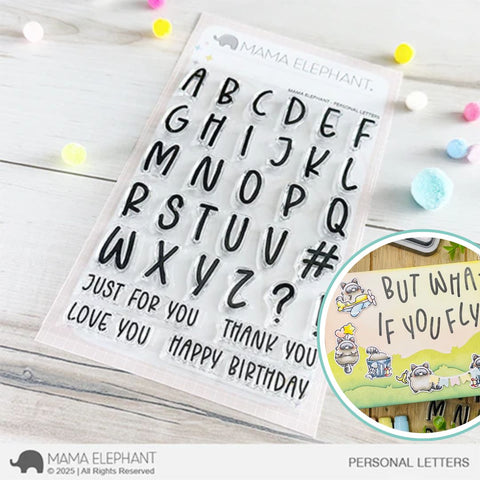 MAMA ELEPHANT.
MAMA ELEPHANT - PERSONAL LETTERS
A B C D E F
G H I J K L
M N O P Q
R S T U V #
W X Y Z ? !
JUST FOR YOU
THANK YOU
LOVE YOU
HAPPY BIRTHDAY
BUT WHAT
IF YOU FLY
M N
MAMA ELEPHANT
© 2025 | All Rights Reserved
PERSONAL LETTERS